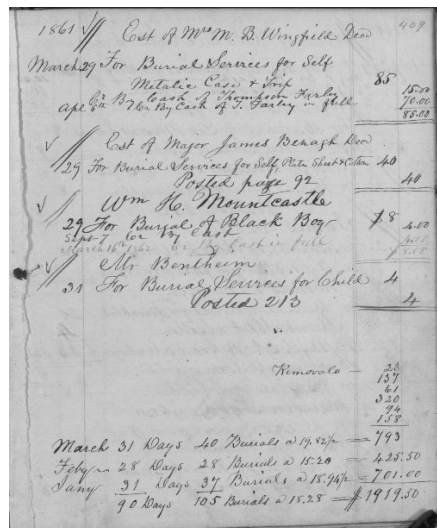 409
1861 Est of Mrs M. B. Wingfield Decd
March 29 For Burial Services for Self
Metalic Case & Trip 85
Cr By Cash of Thompson Farley 15.00
Apl 6th Cr By Cash of T. Farley in full 70.00
85.00
Est of Major James Benagh Decd
29 For Burial Services for Self, Plain Shirt & Cotton 40
Posted page 92 40
Wm H. Mountcastle
29 For Burial of Black Boy 8
Sept 7 Cr By Cash 4.00
March 16th 1862 Cr By Cash in full
8.00
Mr Bentheim
31 For Burial Services for Child 4
Posted 213 4
Removals — 23
137
61
320
94
158
March 31 Days 40 Burials a 19.82½ = 793
Feby 28 Days 28 Burials a 15.20 = 425.50
Jany 31 Days 37 Burials a 18.94½ = 701.00
90 Days 105 Burials a 18.28 = $1919.50